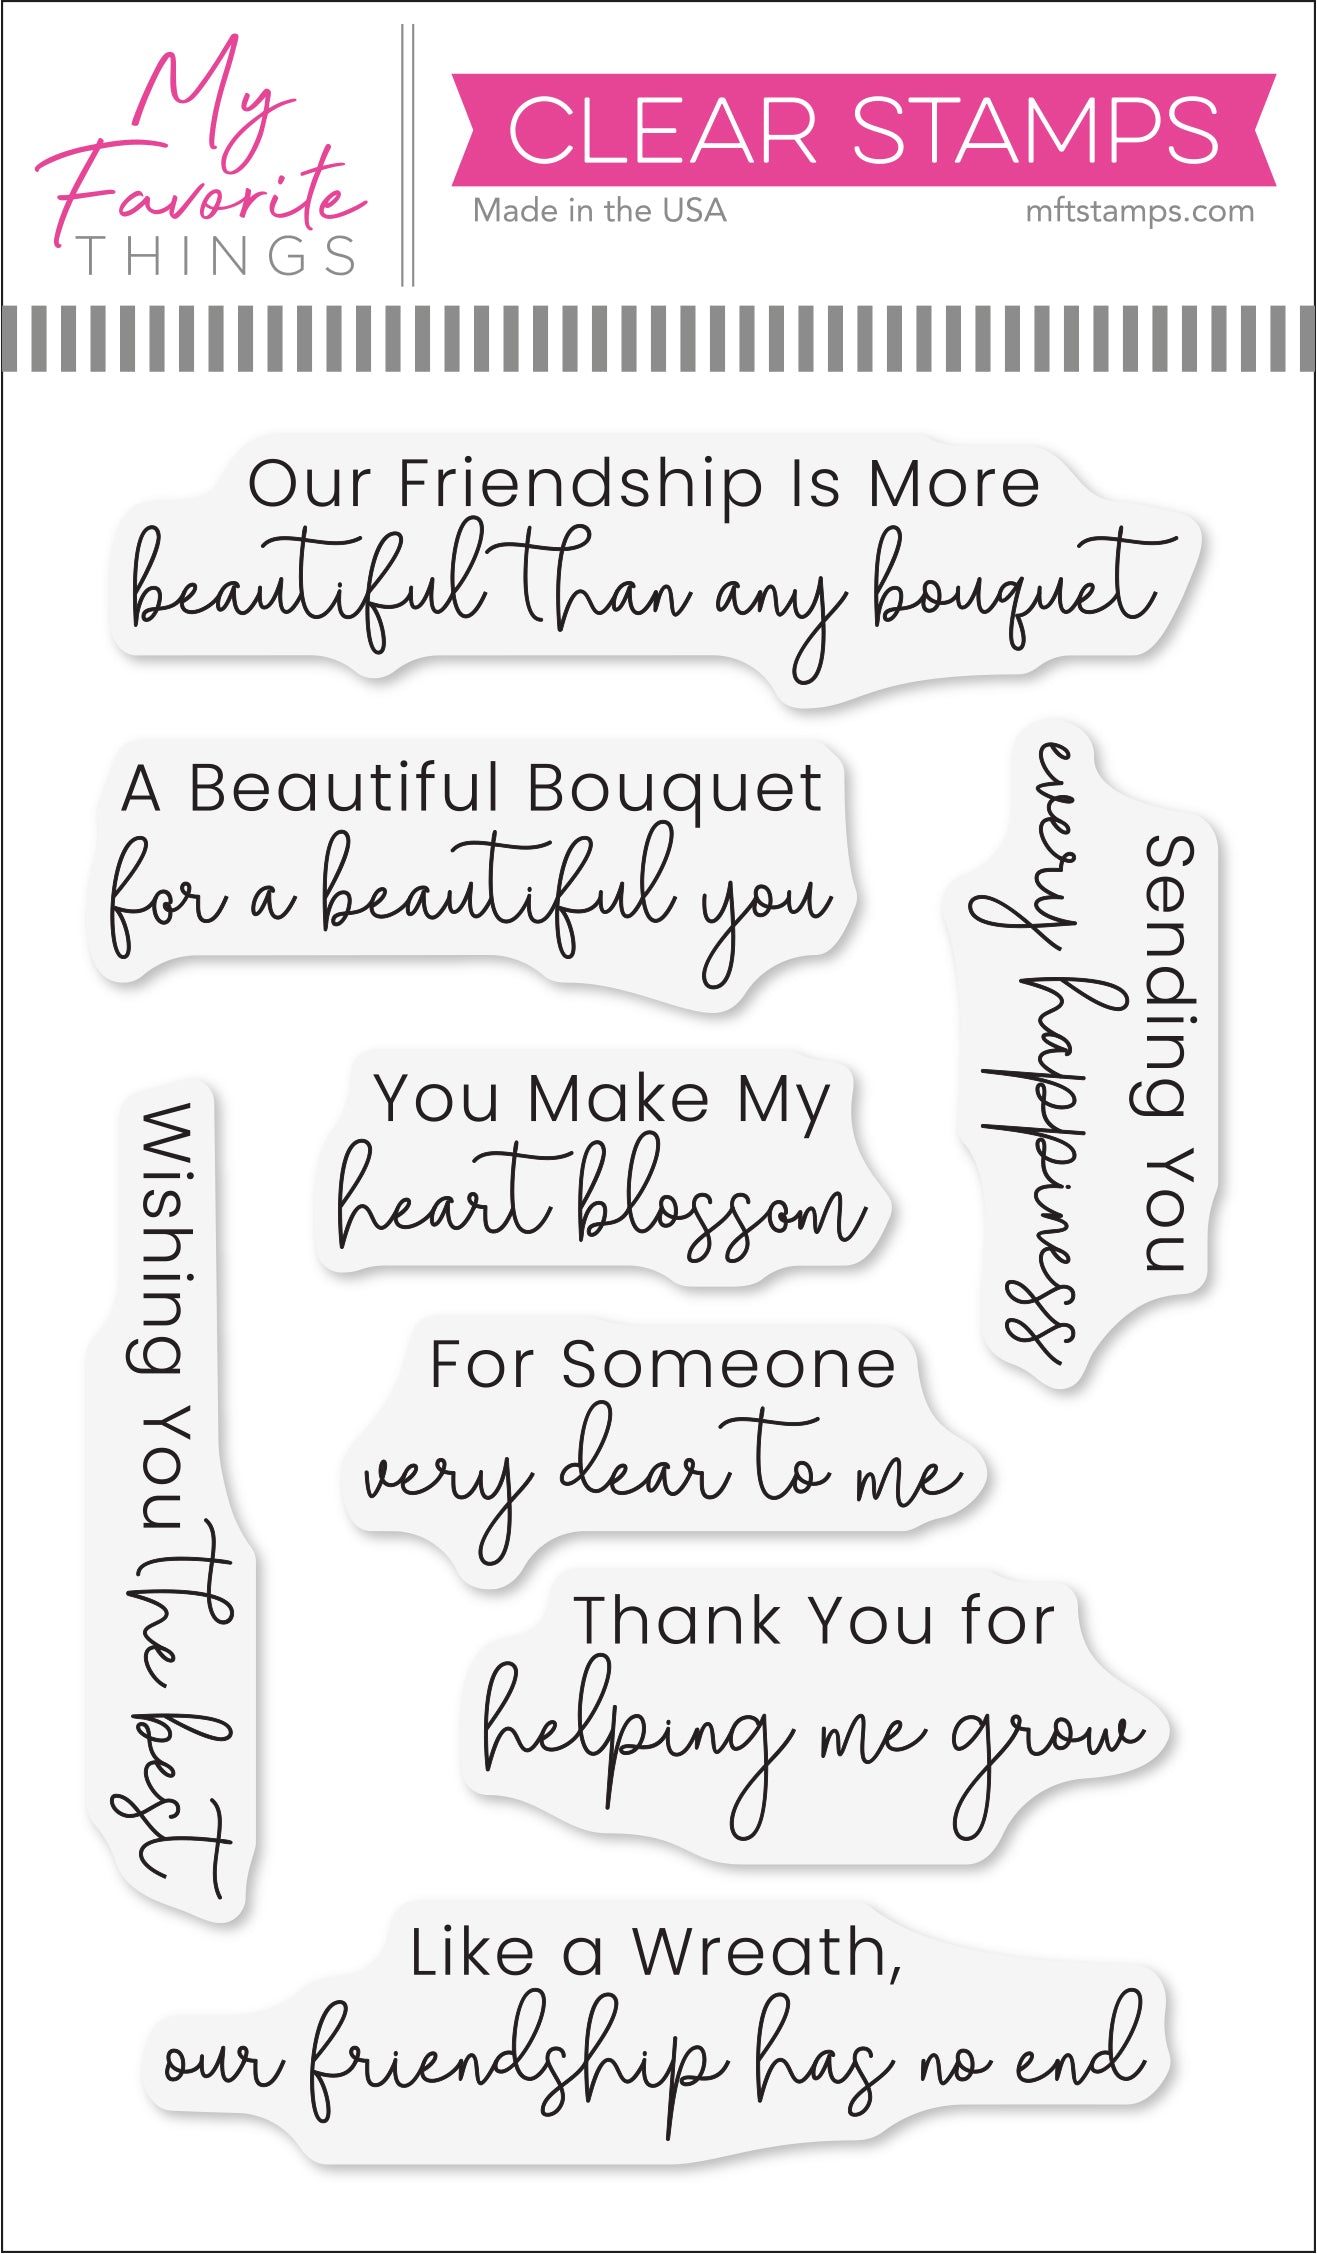 My
Favorite
THINGS
CLEAR STAMPS
Made in the USA
mftstamps.com
Our Friendship Is More
beautiful than any bouquet
A Beautiful Bouquet
for a beautiful you
Sending You
every happiness
You Make My
heart blossom
Wishing You
the best
For Someone
very dear to me
Thank You for
helping me grow
Like a Wreath,
our friendship has no end